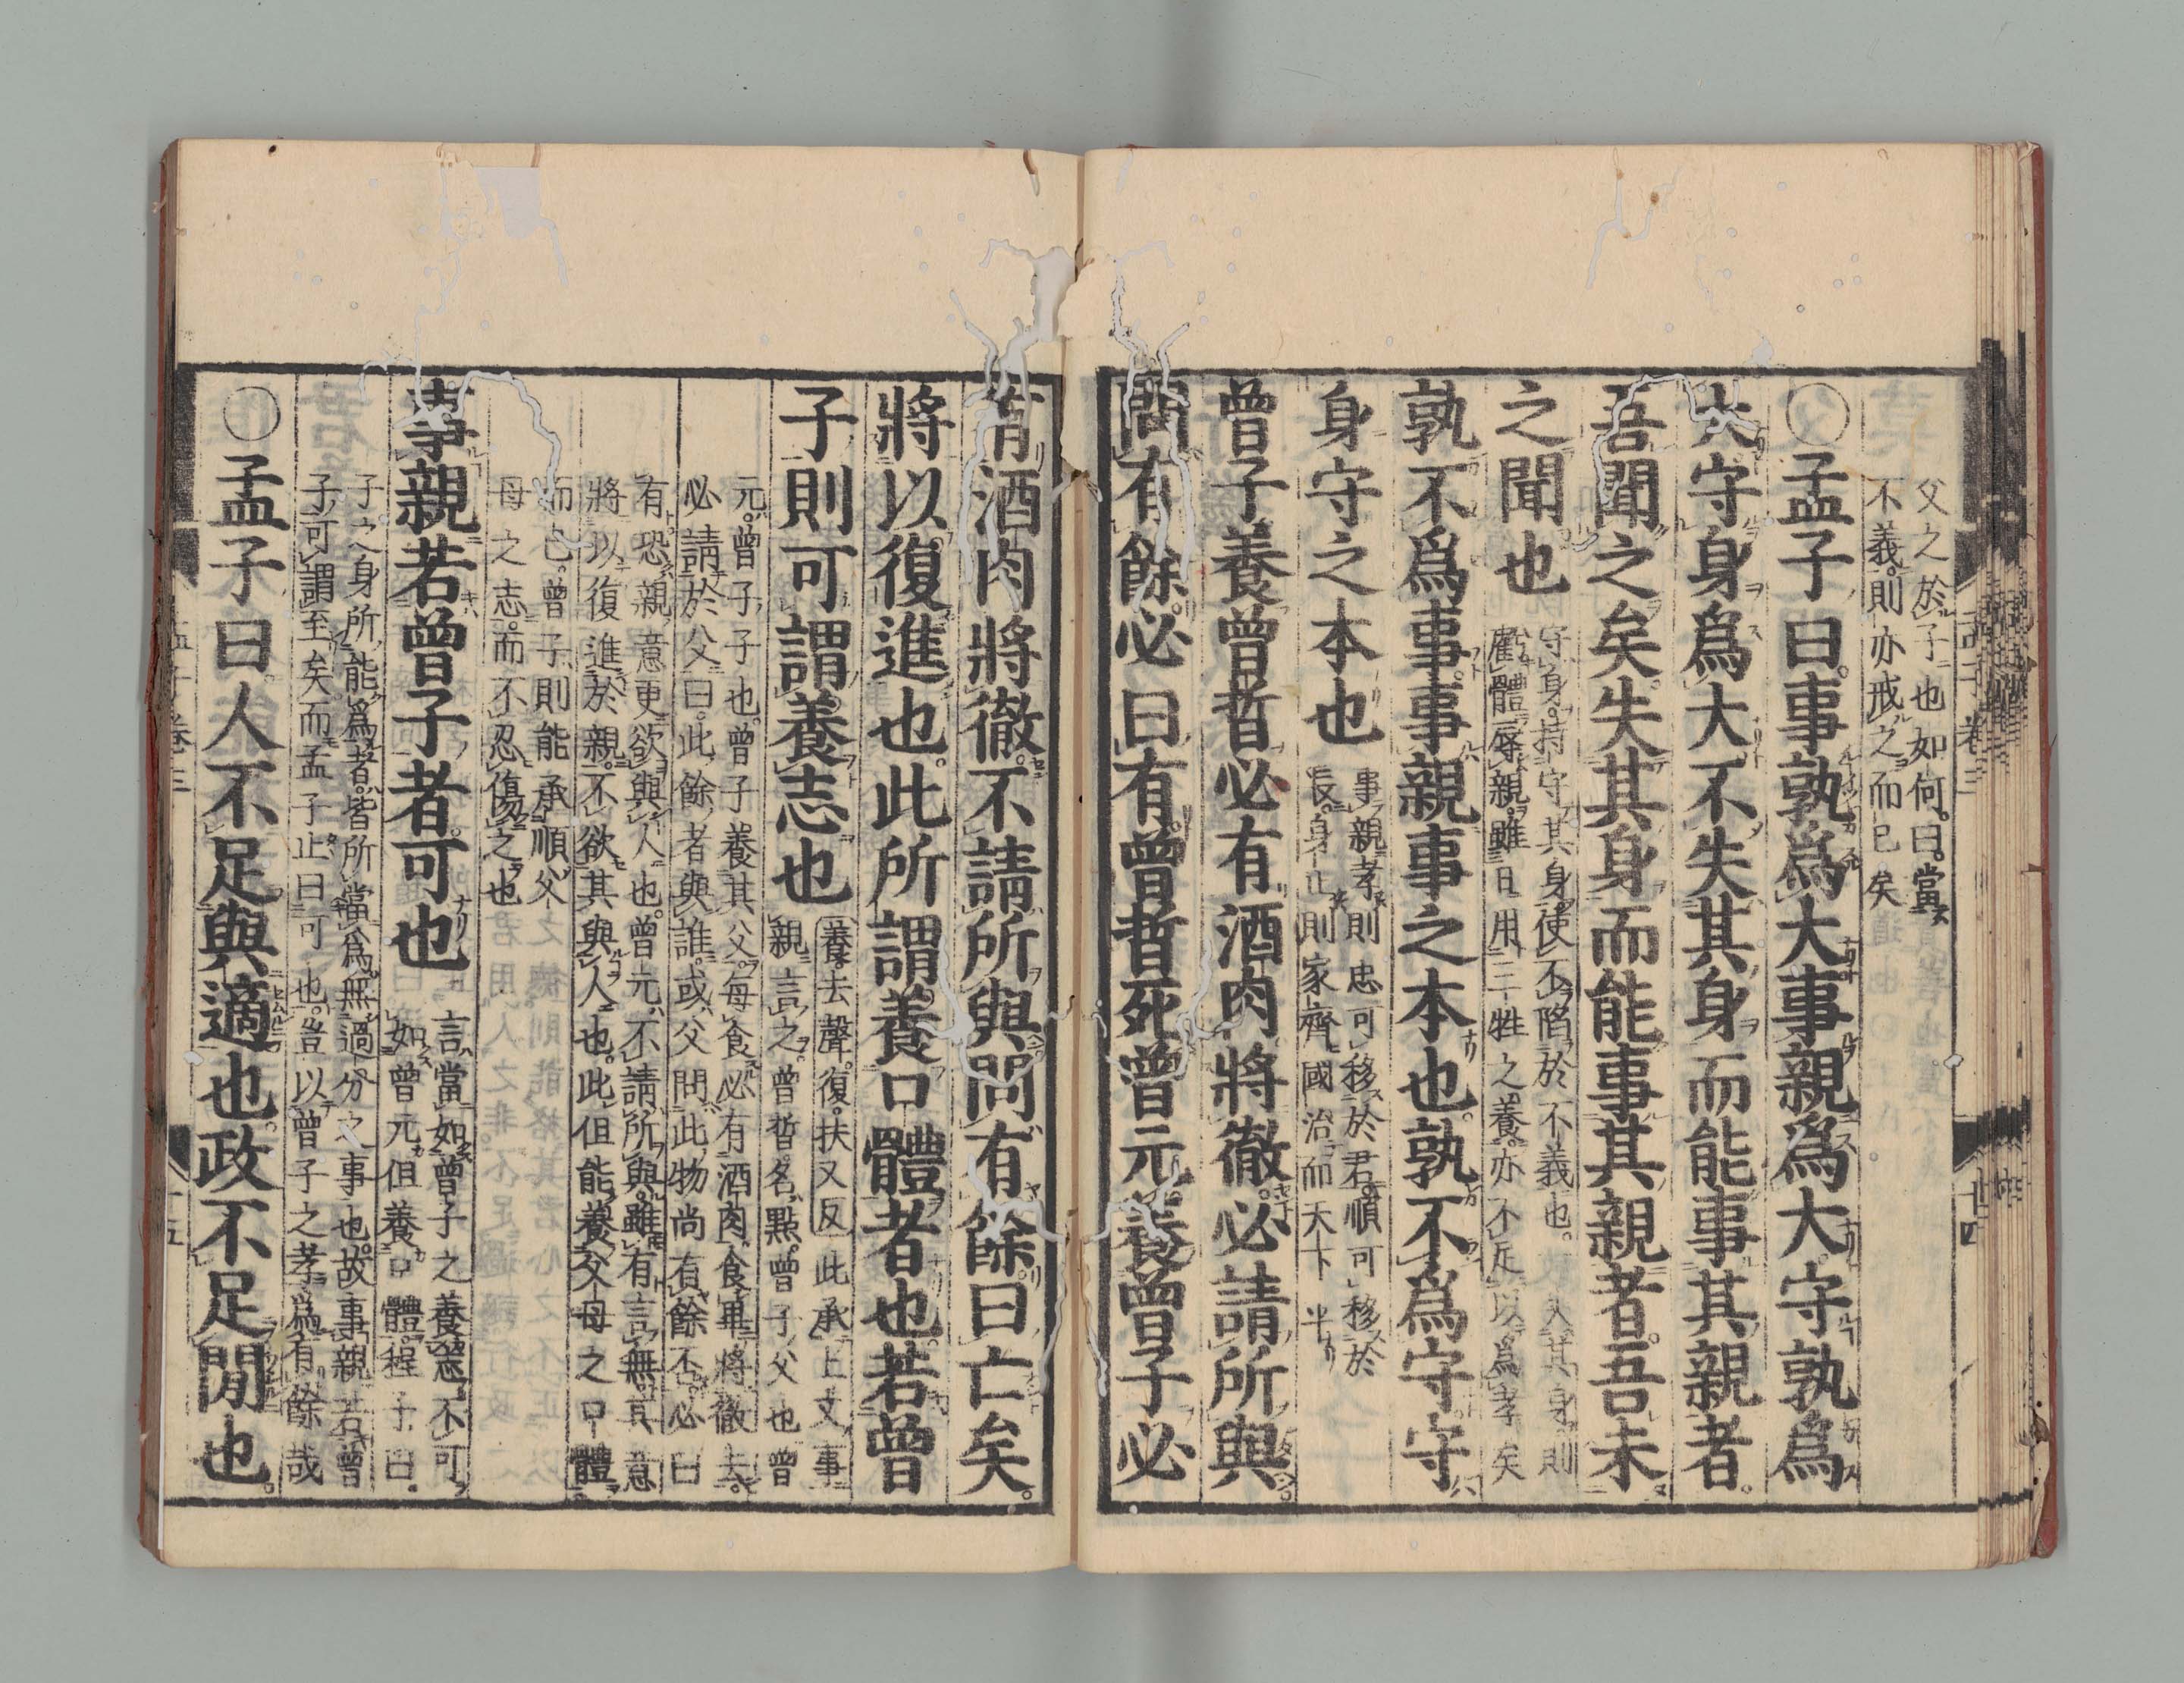 父之於子也如何曰當
不義則亦戒之而已矣
○孟子曰事孰爲大事親爲大守孰爲
大守身爲大不失其身而能事其親者
吾聞之矣失其身而能事其親者吾未
之聞也
守身持守其身使不陷於不義也一失其身則
虧體辱親雖日用三牲之養亦不足以爲孝矣
孰不爲事事親事之本也孰不爲守守
身守之本也
事親孝則忠可移於君順可移於
長身正則家齊國治而天下平
曾子養曾晳必有酒肉將徹必請所與
問有餘必曰有曾晳死曾元養曾子必
有酒肉將徹不請所與問有餘曰亡矣
將以復進也此所謂養口體者也若曾
子則可謂養志也
養去聲復扶又反此承上文事
親言之曾晳名點曾子父也曾
元曾子子也曾子養其父每食必有酒肉食畢將徹去
必請於父曰此餘者與誰或父問此物尚有餘否必曰
有恐親意更欲與人也曾元不請所與雖有言無其意
將以復進於親不欲其與人也此但能養父母之口體
而已曾子則能承順父
母之志而不忍傷之也
事親若曾子者可也
言當如曾子之養志不可
如曾元但養口體程子曰
子之身所能爲者皆所當爲無過分之事也故事親若曾
子可謂至矣而孟子止曰可也豈以曾子之孝爲有餘哉
○孟子曰人不足與適也政不足閒也
孟子卷三
十四